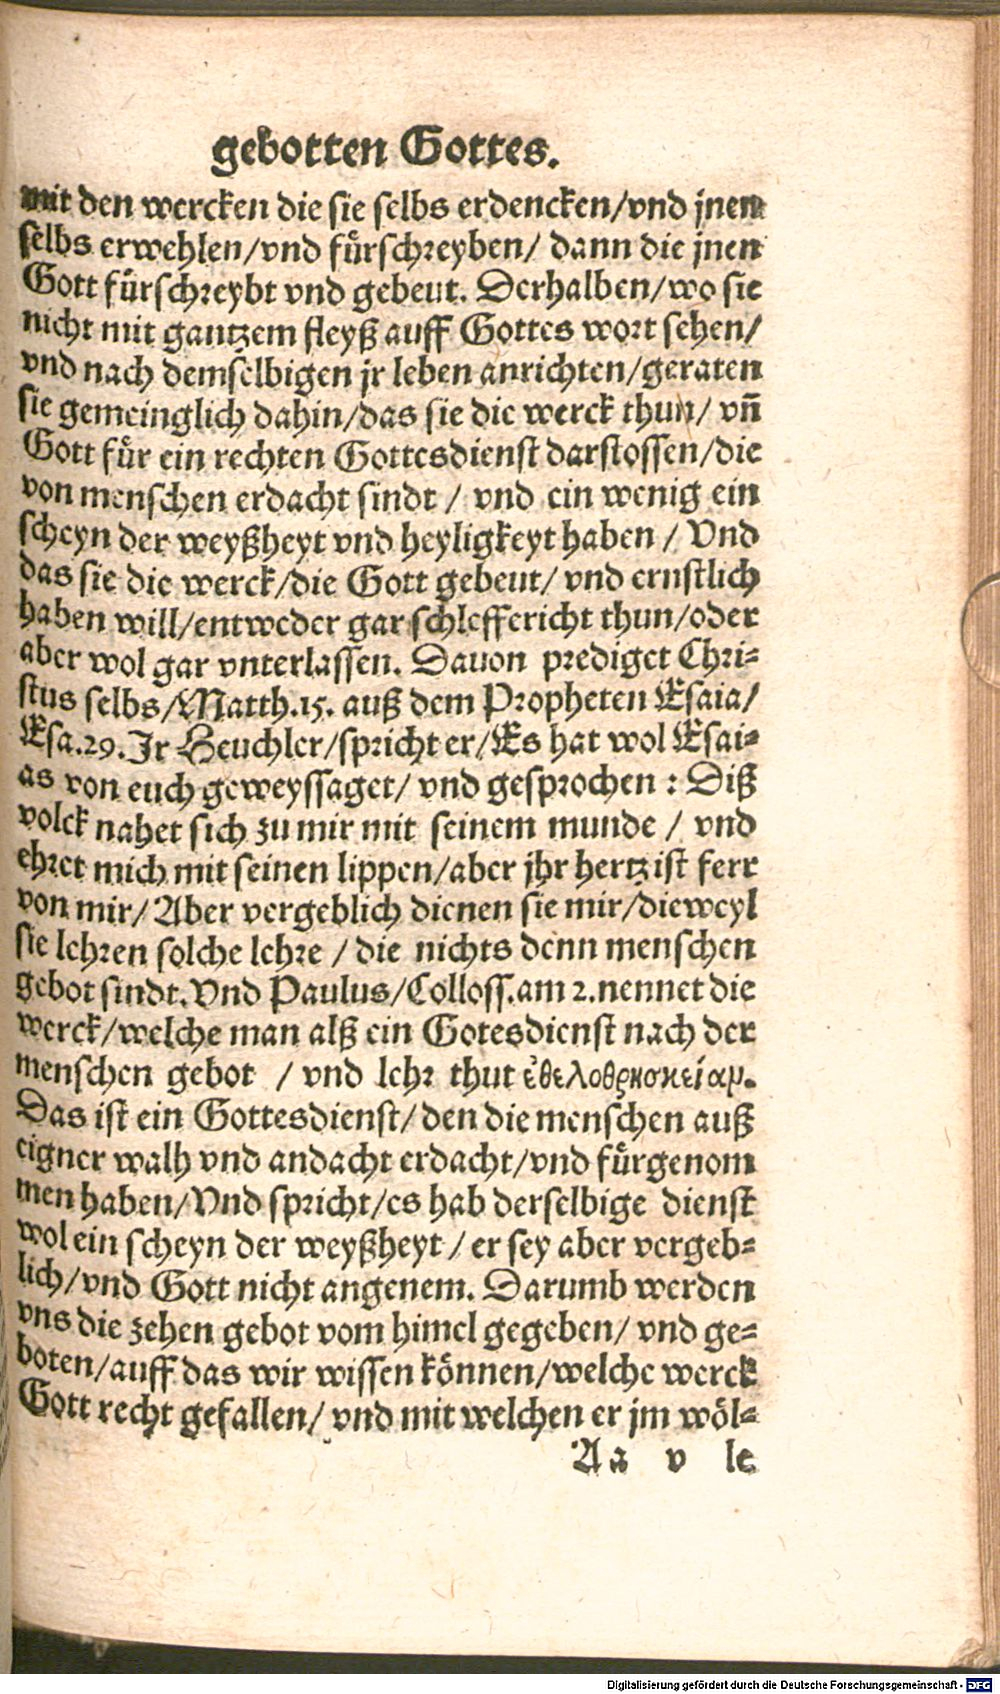 gebotten Gottes.
mit den wercken die sie selbs erdencken/vnd jnen
selbs erwehlen/vnd fürschreyben/ dann die jnen
Gott fürschreybt vnd gebeut. Derhalben/wo sie
nicht mit gantzem fleyß auff Gottes wort sehen/
vnd nach demselbigen jr leben anrichten/geraten
sie gemeinglich dahin/das sie die werck thun/ vñ
Gott für ein rechten Gottesdienst darstossen/die
von menschen erdacht sindt / vnd ein wenig ein
scheyn der weyßheyt vnd heyligkeyt haben / Vnd
das sie die werck/die Gott gebeut/ vnd ernstlich
haben will/entweder gar schleffericht thun/oder
aber wol gar vnterlassen. Dauon prediget Chri=
stus selbs/Matth.15. auß dem Propheten Esaia/
Esa.29. Jr Heuchler/spricht er/Es hat wol Esai=
as von euch geweyssaget/ vnd gesprochen : Diß
volck nahet sich zu mir mit seinem munde / vnd
ehret mich mit seinen lippen/aber jhr hertz ist ferr
von mir/ Aber vergeblich dienen sie mir/dieweyl
sie lehren solche lehre / die nichts denn menschen
gebot sindt. Vnd Paulus/Colloss.am 2.nennet die
werck/welche man alß ein Gotesdienst nach der
menschen gebot / vnd lehr thut ἐθελοθρησκείαμ.
Das ist ein Gottesdienst/ den die menschen auß
eigner walh vnd andacht erdacht/vnd fürgenom
men haben/Vnd spricht/es hab derselbige dienst
wol ein scheyn der weyßheyt / er sey aber vergeb=
lich/vnd Gott nicht angenem. Darumb werden
vns die zehen gebot vom himel gegeben/ vnd ge=
boten/auff das wir wissen können/welche werck
Gott recht gefallen/ vnd mit welchen er jm wöl=
Aa v le
Digitalisierung gefördert durch die Deutsche Forschungsgemeinschaft - DFG